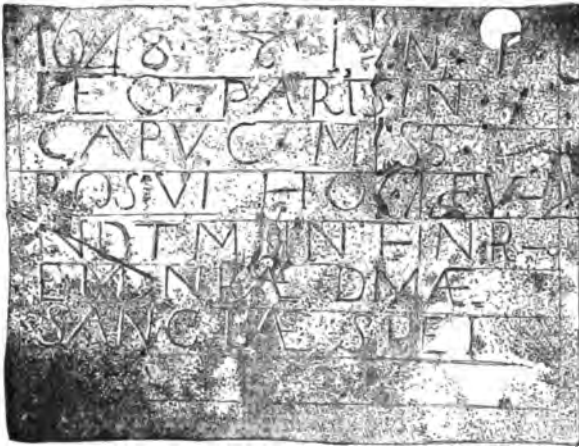 1648 · 8 IVN · F
LEO · PARISIN ·
CAPVC · MISS ·
POSVI HOC FV-
NDTM IN HNR-
EM NRÆ DMÆ
SANCTÆ SPEI